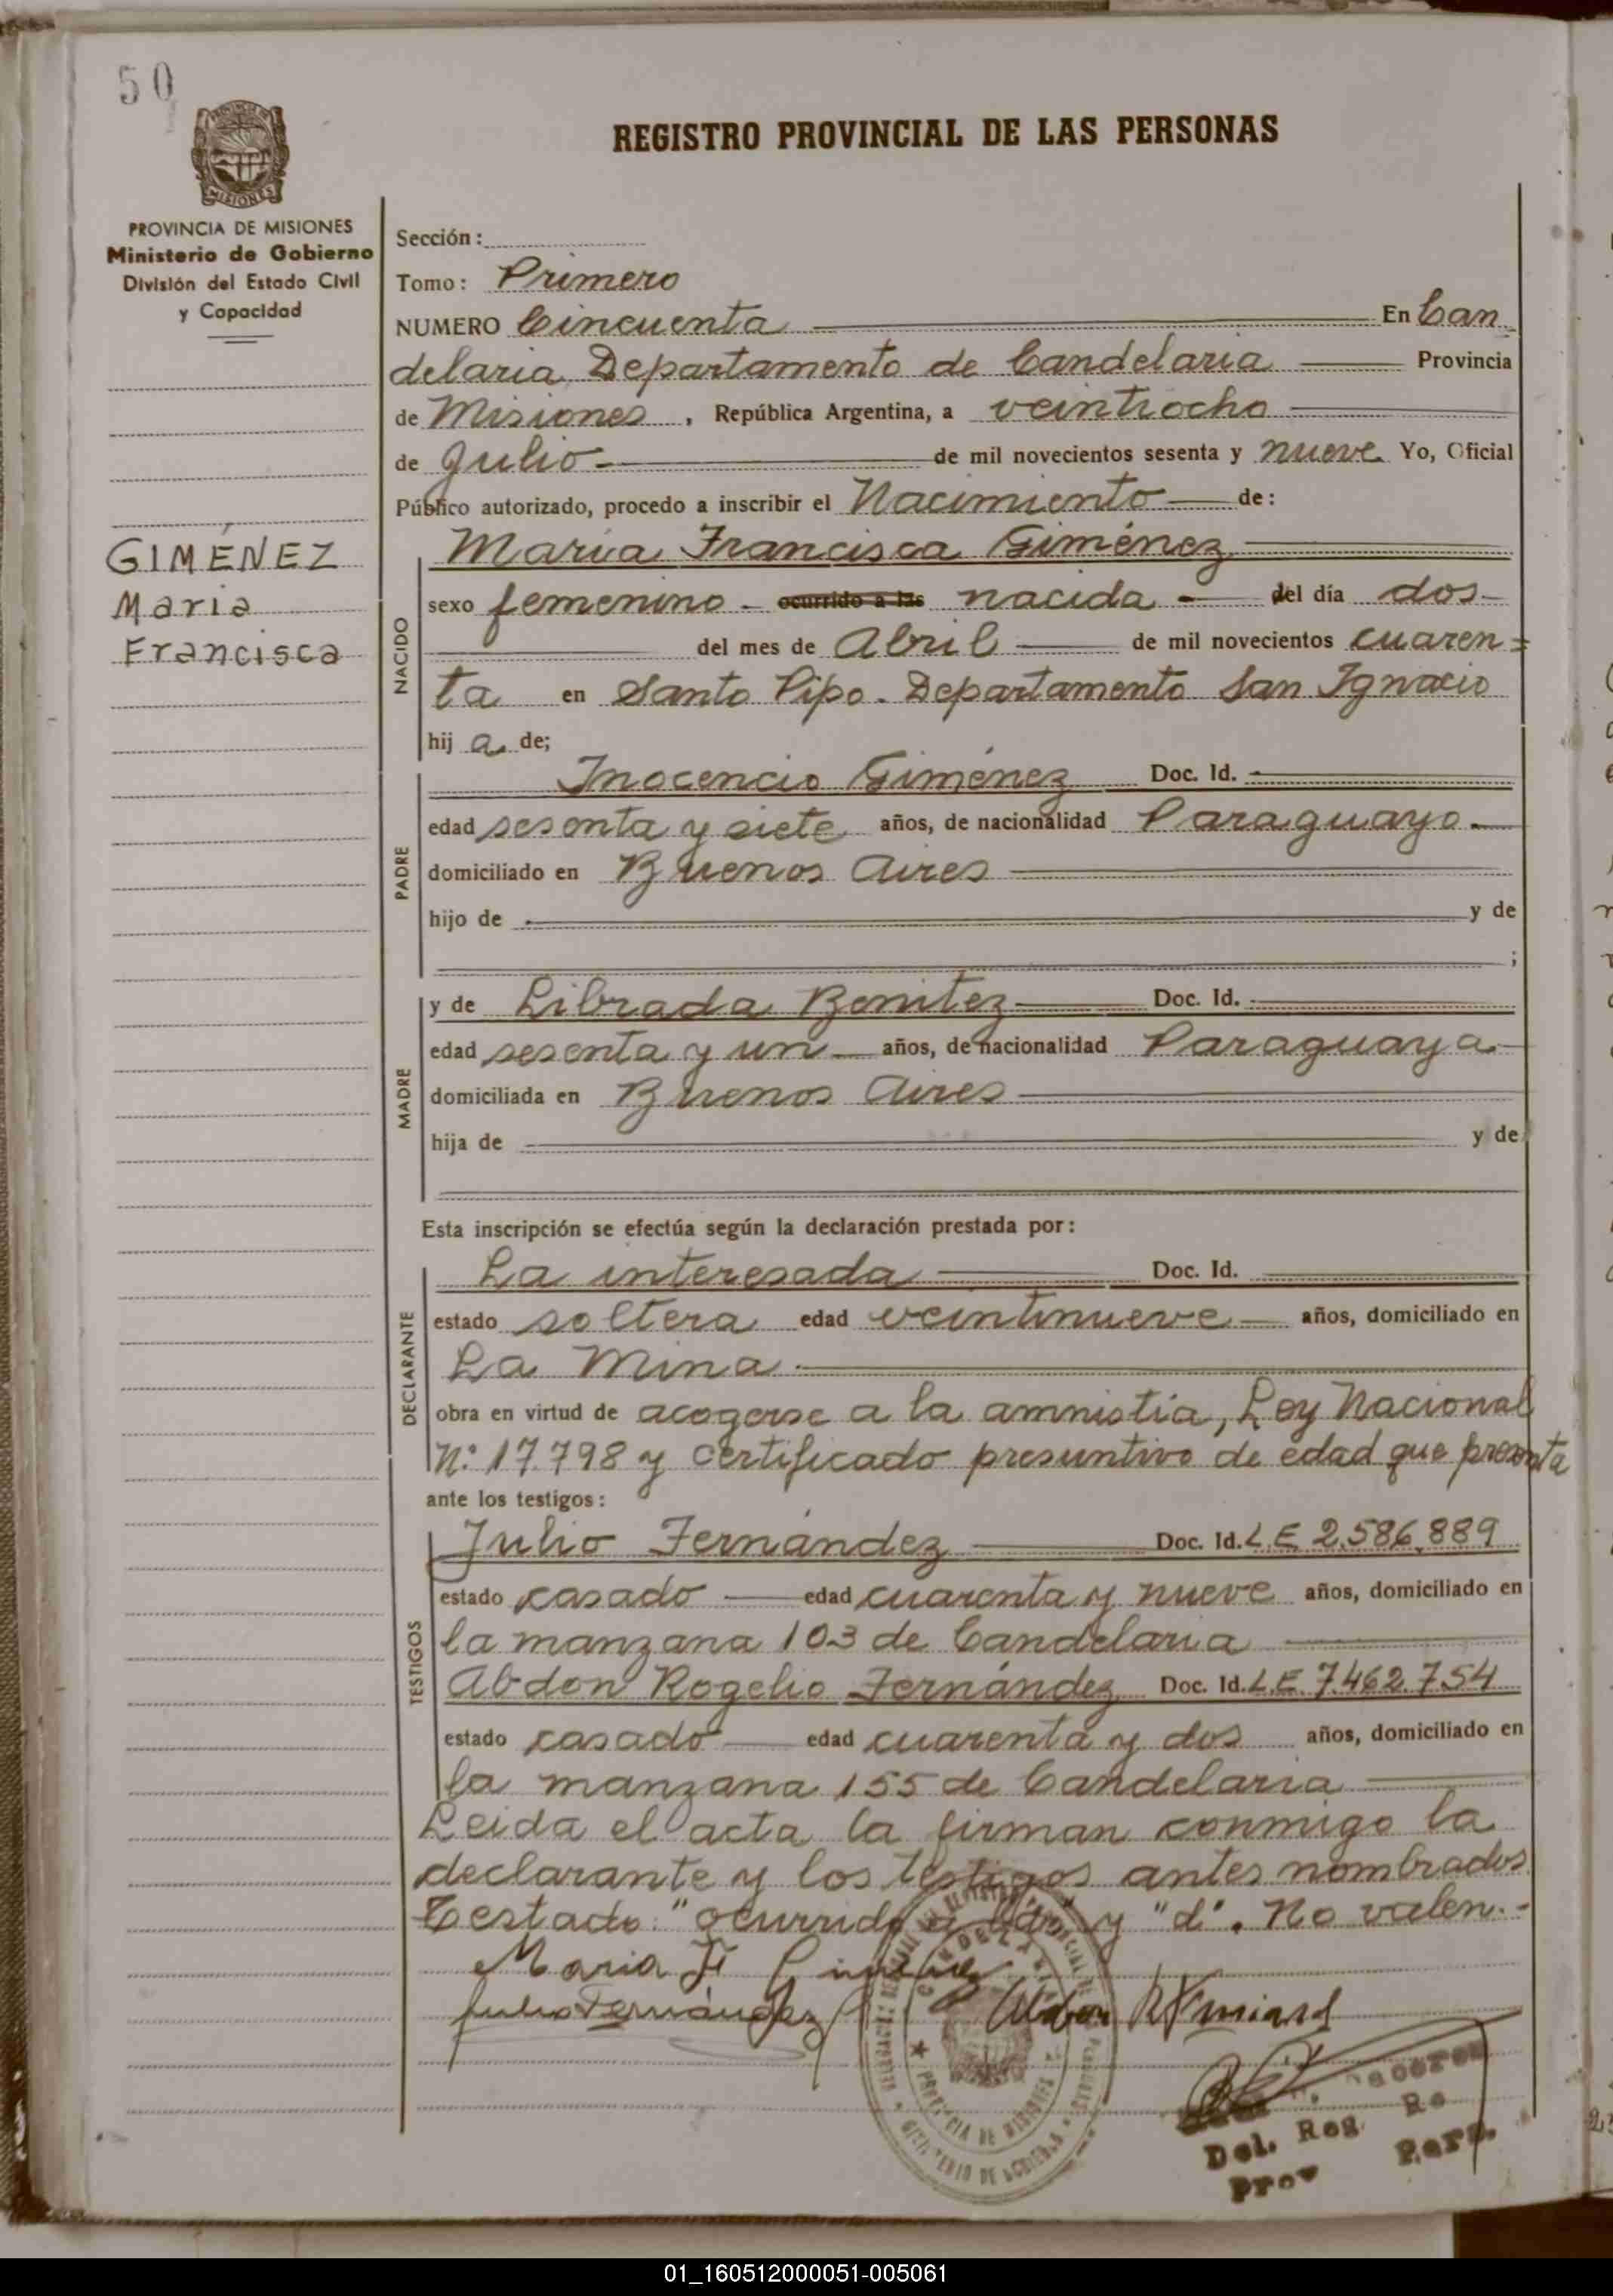 50
REGISTRO PROVINCIAL DE LAS PERSONAS
PROVINCIA DE MISIONES
Ministerio de Gobierno
División del Estado Civil
y Capacidad
GIMÉNEZ
Maria
Francisca
Sección:
Tomo: Primero
NUMERO Cincuenta En Can
delaria, Departamento de Candelaria Provincia
de Misiones, República Argentina, a veintiocho
de Julio de mil novecientos sesenta y nueve Yo, Oficial
Público autorizado, procedo a inscribir el Nacimiento de:
NACIDO
Maria Francisca Giménez
sexo femenino - ocurrido a las nacida - del día dos
del mes de Abril de mil novecientos cuaren=
ta en Santo Pipo. Departamento San Ignacio
hij a de;
PADRE
Inocencio Giménez Doc. Id.
edad sesenta y siete años, de nacionalidad Paraguayo
domiciliado en Buenos Aires
hijo de y de
;
MADRE
y de Librada Benitez Doc. Id.
edad sesenta y un años, de nacionalidad Paraguaya
domiciliada en Buenos Aires
hija de y de
Esta inscripción se efectúa según la declaración prestada por:
DECLARANTE
La interesada Doc. Id.
estado soltera edad veintinueve años, domiciliado en
La Mina
obra en virtud de acogerse a la amnistia, Ley Nacional
N: 17.798 y certificado presuntivo de edad que presenta
ante los testigos:
TESTIGOS
Julio Fernández Doc. Id. L.E 2.586.889
estado casado edad cuarenta y nueve años, domiciliado en
la manzana 103 de Candelaria
Abdon Rogelio Fernández Doc. Id. L.E. 7.462.754
estado casado edad cuarenta y dos años, domiciliado en
la manzana 155 de Candelaria
Leida el acta la firman conmigo la
declarante y los testigos antes nombrados
Testado: "ocurrido a las" y "d". No valen.-
Maria F Giménez
Julio Fernández Abdon R Fernand
PROVINCIA DE MISIONES
Del. Reg.
Prov Pers.
01_160512000051-005061